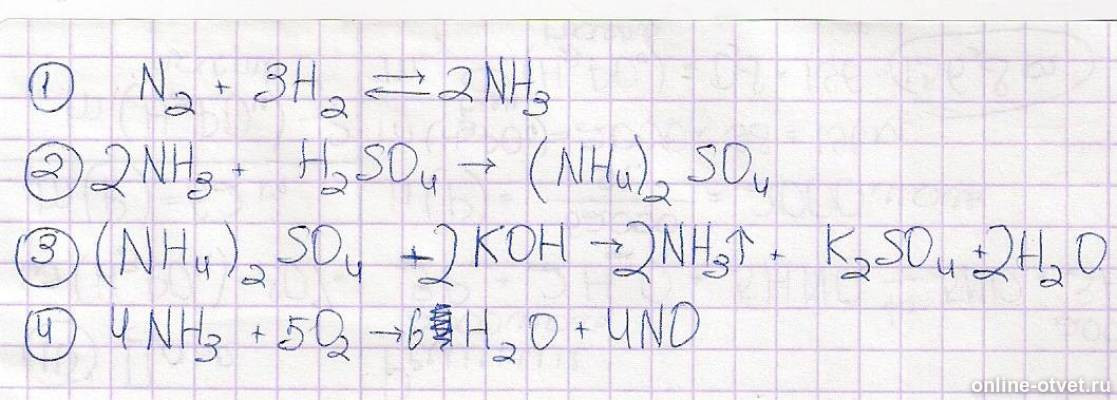 ① N₂ + 3H₂ ⇌ 2NH₃
② 2NH₃ + H₂SO₄ → (NH₄)₂SO₄
③ (NH₄)₂SO₄ + 2KOH → 2NH₃↑ + K₂SO₄ + 2H₂O
④ 4NH₃ + 5O₂ → 6H₂O + 4NO
online-otvet.ru